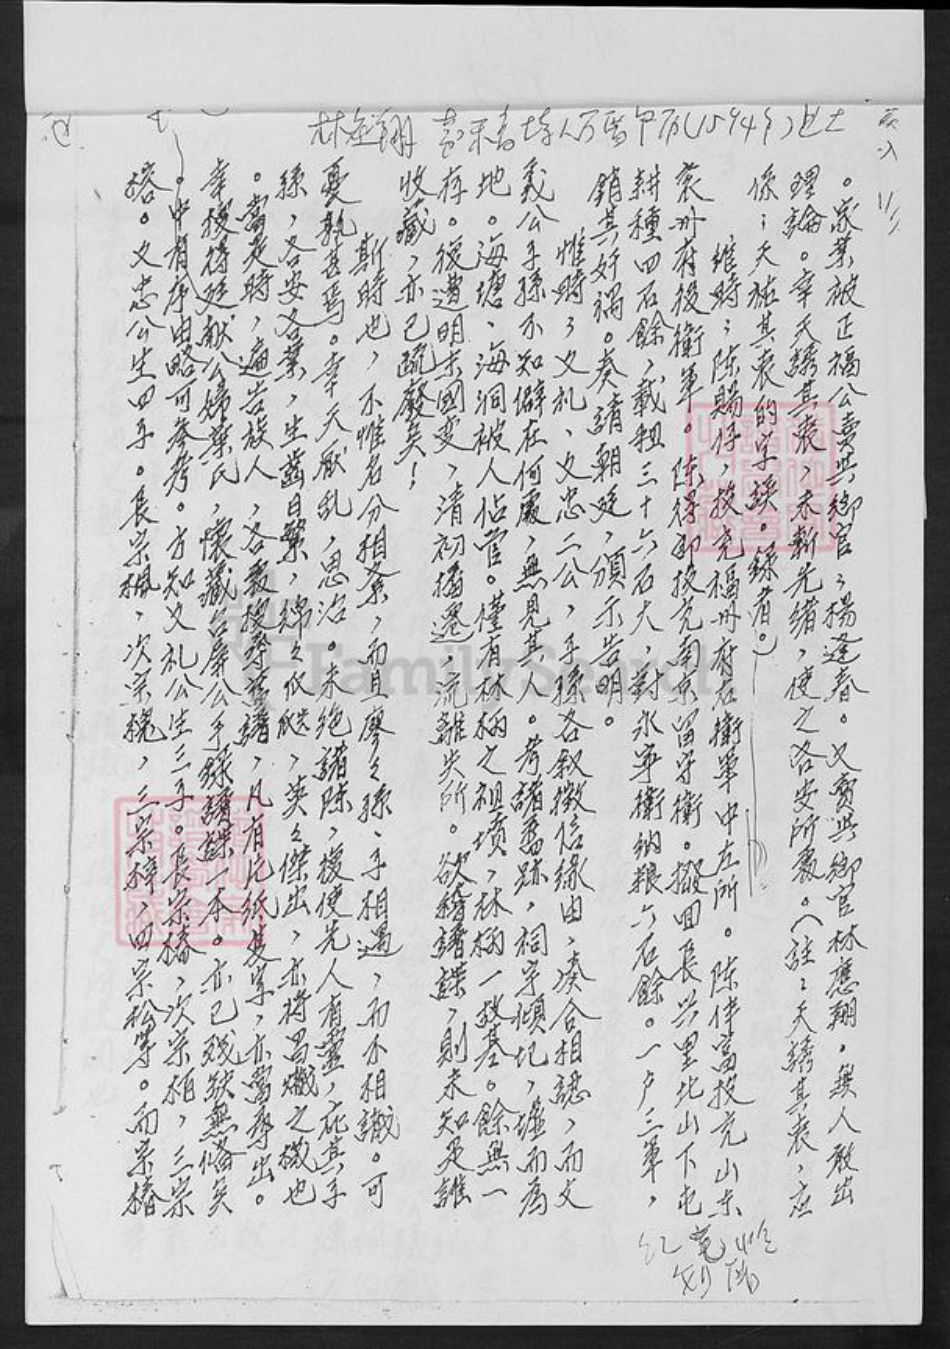 林應翔 萬曆甲午(1594年)進士
。家業被正福公賣與鄉官;楊逢春。又賣與鄉官林應翔。無人敢出
理論。幸天誘其衷,未斬先緒,使之各安所處。(註:天誘其衷,應
係:天祐其衷的字誤。錄者。)
維時;陳賜仔,投充福州府右衛軍中左所。陳伴富投充山東
袞州府後衛軍。陳得卸投充南京留守衛。撥回長興里北山下屯
耕種四石餘,載租三十六石大,對永寧衛納粮六石餘。一戶三軍,
銷其奸禍。奏請朝廷,頒示告明。
惟時;文礼、文忠二公,子孫各叙徵信緣由,湊合相認,而文
義公子孫不知僻在何處,無見其人。考諸舊跡,祠宇傾圮,墟而為
地。海塘、海洞被人佔管。僅有林柄之祖墳,林柄一教基。餘無一
存。復遭明末國變,清初播遷,流離失所。欲稽譜諜,則未知是誰
收藏,亦已疏廢矣!
斯時也,不惟名分相紊,而且廖之孫、子相遇,而不相識。可
憂孰甚焉。幸天厭乱,思治。未絕諸陳,復使先人有靈,庇其子
孫,各安各業,生齒日繁,綿之似瓞,英之傑出,亦將昌熾之機也
。當是時,遍告族人,各裂搜尋舊譜,凡有片紙隻字,亦當尋出。
幸搜得廷献公婦葉氏,懷藏
公手錄譜諜一本。亦已殘缺無偹矣
。中有序由略可參考。方知文礼公生三子。長宗椿,次宗柏,三宗
榕。文忠公生四子。長宗楓,次宗槐,三宗梓,四宗松等。而宗椿
FamilySearch